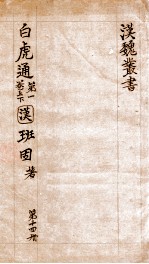 漢魏叢書
白虎通 第一 卷上下
漢 班固 著
第十四册